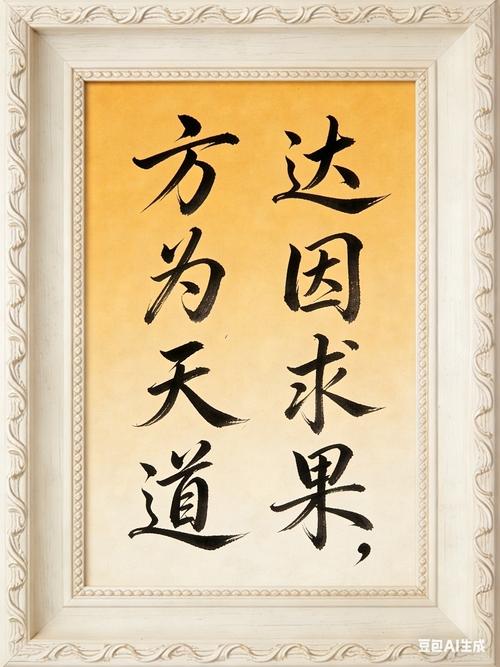 达因求果，
方为天道
豆包AI生成